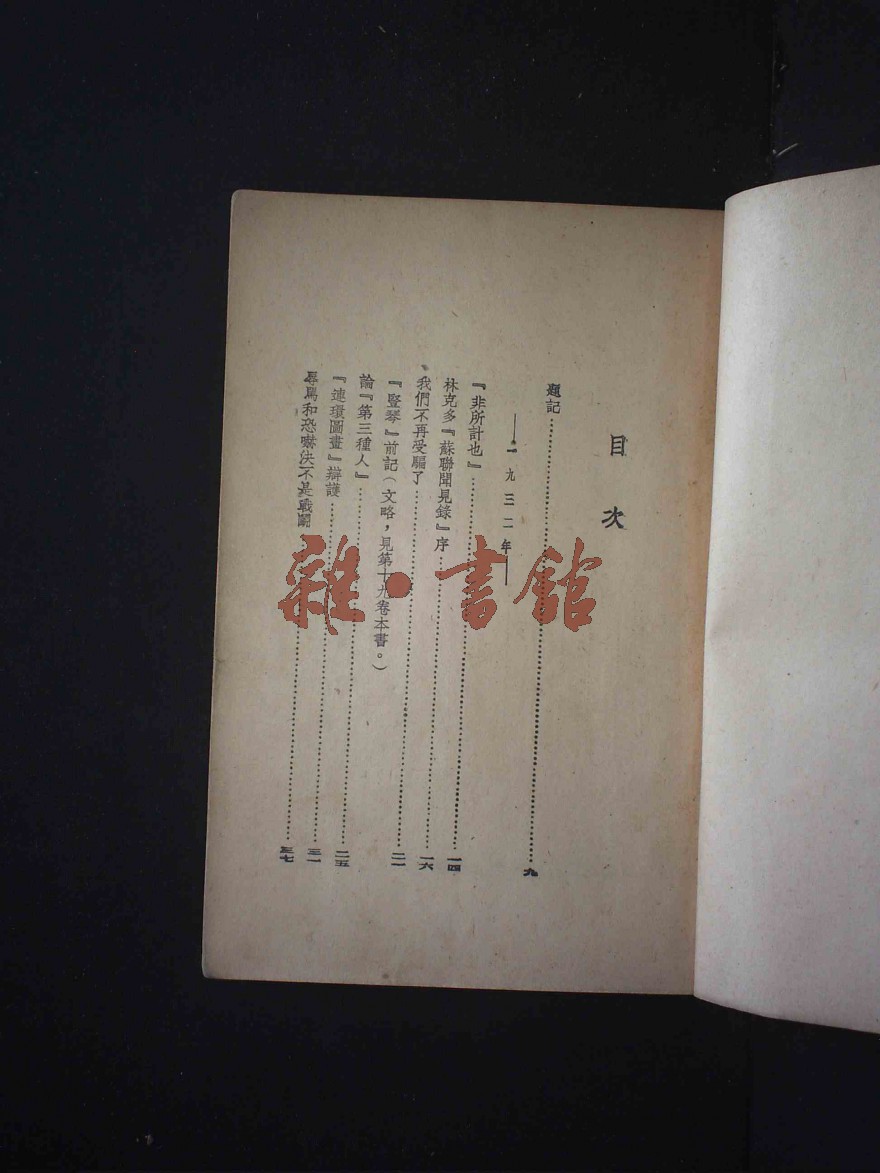 目次
題記……九
——一九三二年——
『非所計也』……一四
林克多『蘇聯聞見錄』序……一六
我們不再受騙了……二一
『豎琴』前記(文略,見第十九卷本書。)
論『第三種人』……二五
『連環圖畫』辯護……三一
辱罵和恐嚇決不是戰鬪……三七
雜·書館